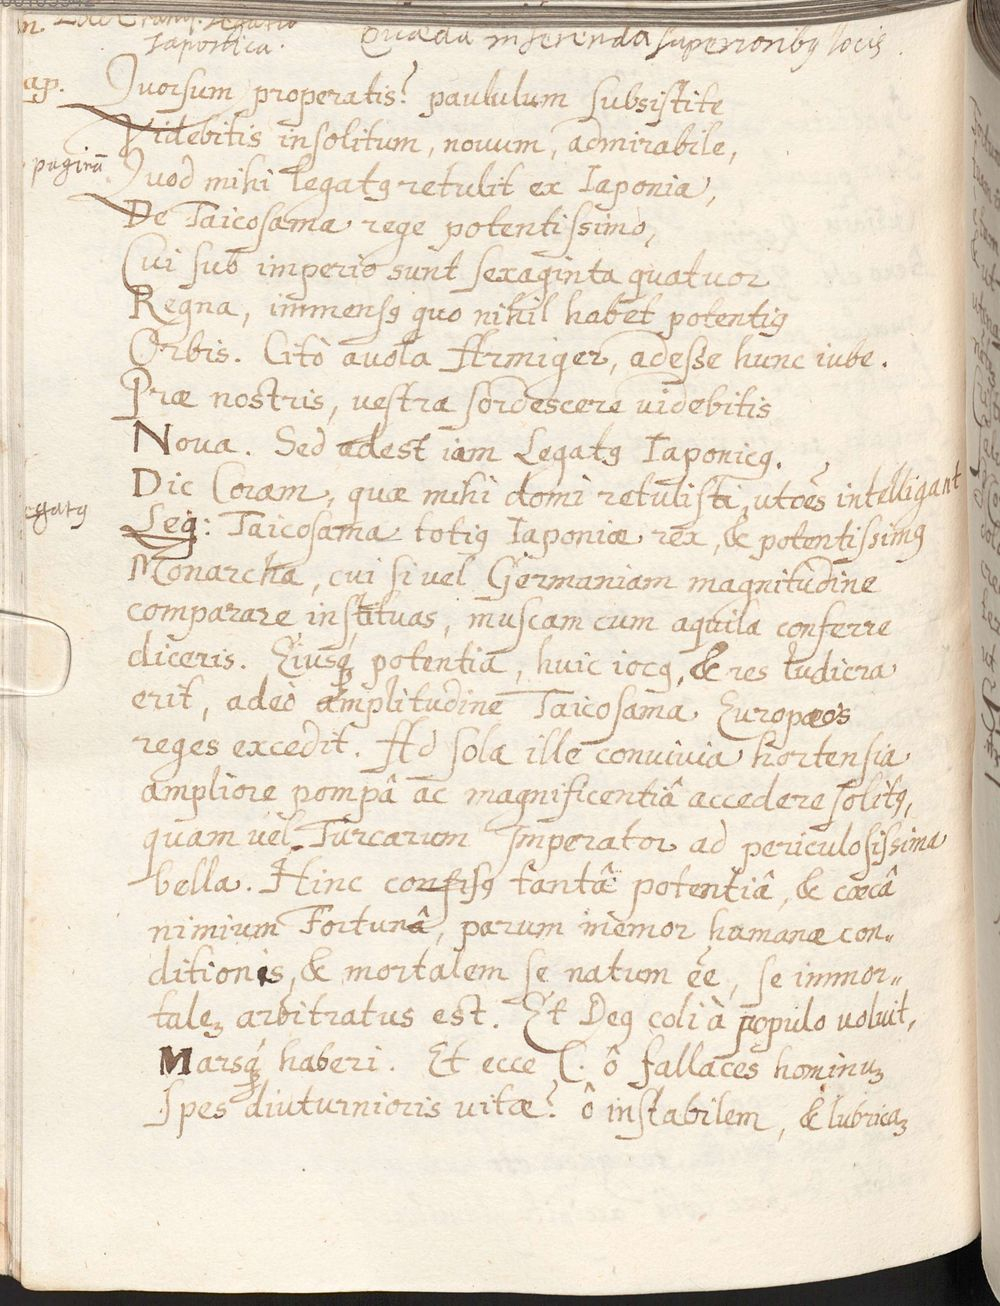 Iaponica. Quædã inserenda superioribꝯ locis.
ap. Quorsum properatis? paululum subsistite
Videbitis insolitum, nouum, admirabile,
paginã Quod mihi legatꝯ retulit ex Iaponia,
De Taicosama rege potentissimo,
Cui sub imperio sunt sexaginta quatuor
Regna, immensꝯ quo nihil habet potentiꝯ
Orbis. Citò auola Armiger, adesse hunc iube.
Præ nostris, vestra sordescere uidebitis
Noua. Sed adest iam Legatꝯ Iaponicꝯ.
Dic Coram, quæ mihi domi retulisti, ut oẽs intelligant
egatꝯ Leg: Taicosama totiꝯ Iaponiæ rex, & potentissimꝯ
Monarcha, cui si uel Germaniam magnitudine
comparare instituas, muscam cum aquila conferre
diceris. Eiusq́ꝫ potentia, huic iocꝯ, & res ludicra
erit, adeò amplitudine Taicosama Europæos
reges excedit. Ad sola ille convivia hortensia
ampliore pompâ ac magnificentiâ accedere solitꝯ,
quam uel Turcarum Imperator ad periculosissima
bella. Hinc confisꝯ tantâ potentiâ, & cæcâ
nimium Fortunâ, parum memor humanæ con„
ditionis, & mortalem se natum eẽ, se immor„
taleꝫ arbitratus est. Et Deꝯ coli à populo uoluit,
Marsq́ꝫ haberi. Et ecce l. ô fallaces hominuꝫ
Spes diuturnioris vitæ? ô instabilem, & lubricaꝫ